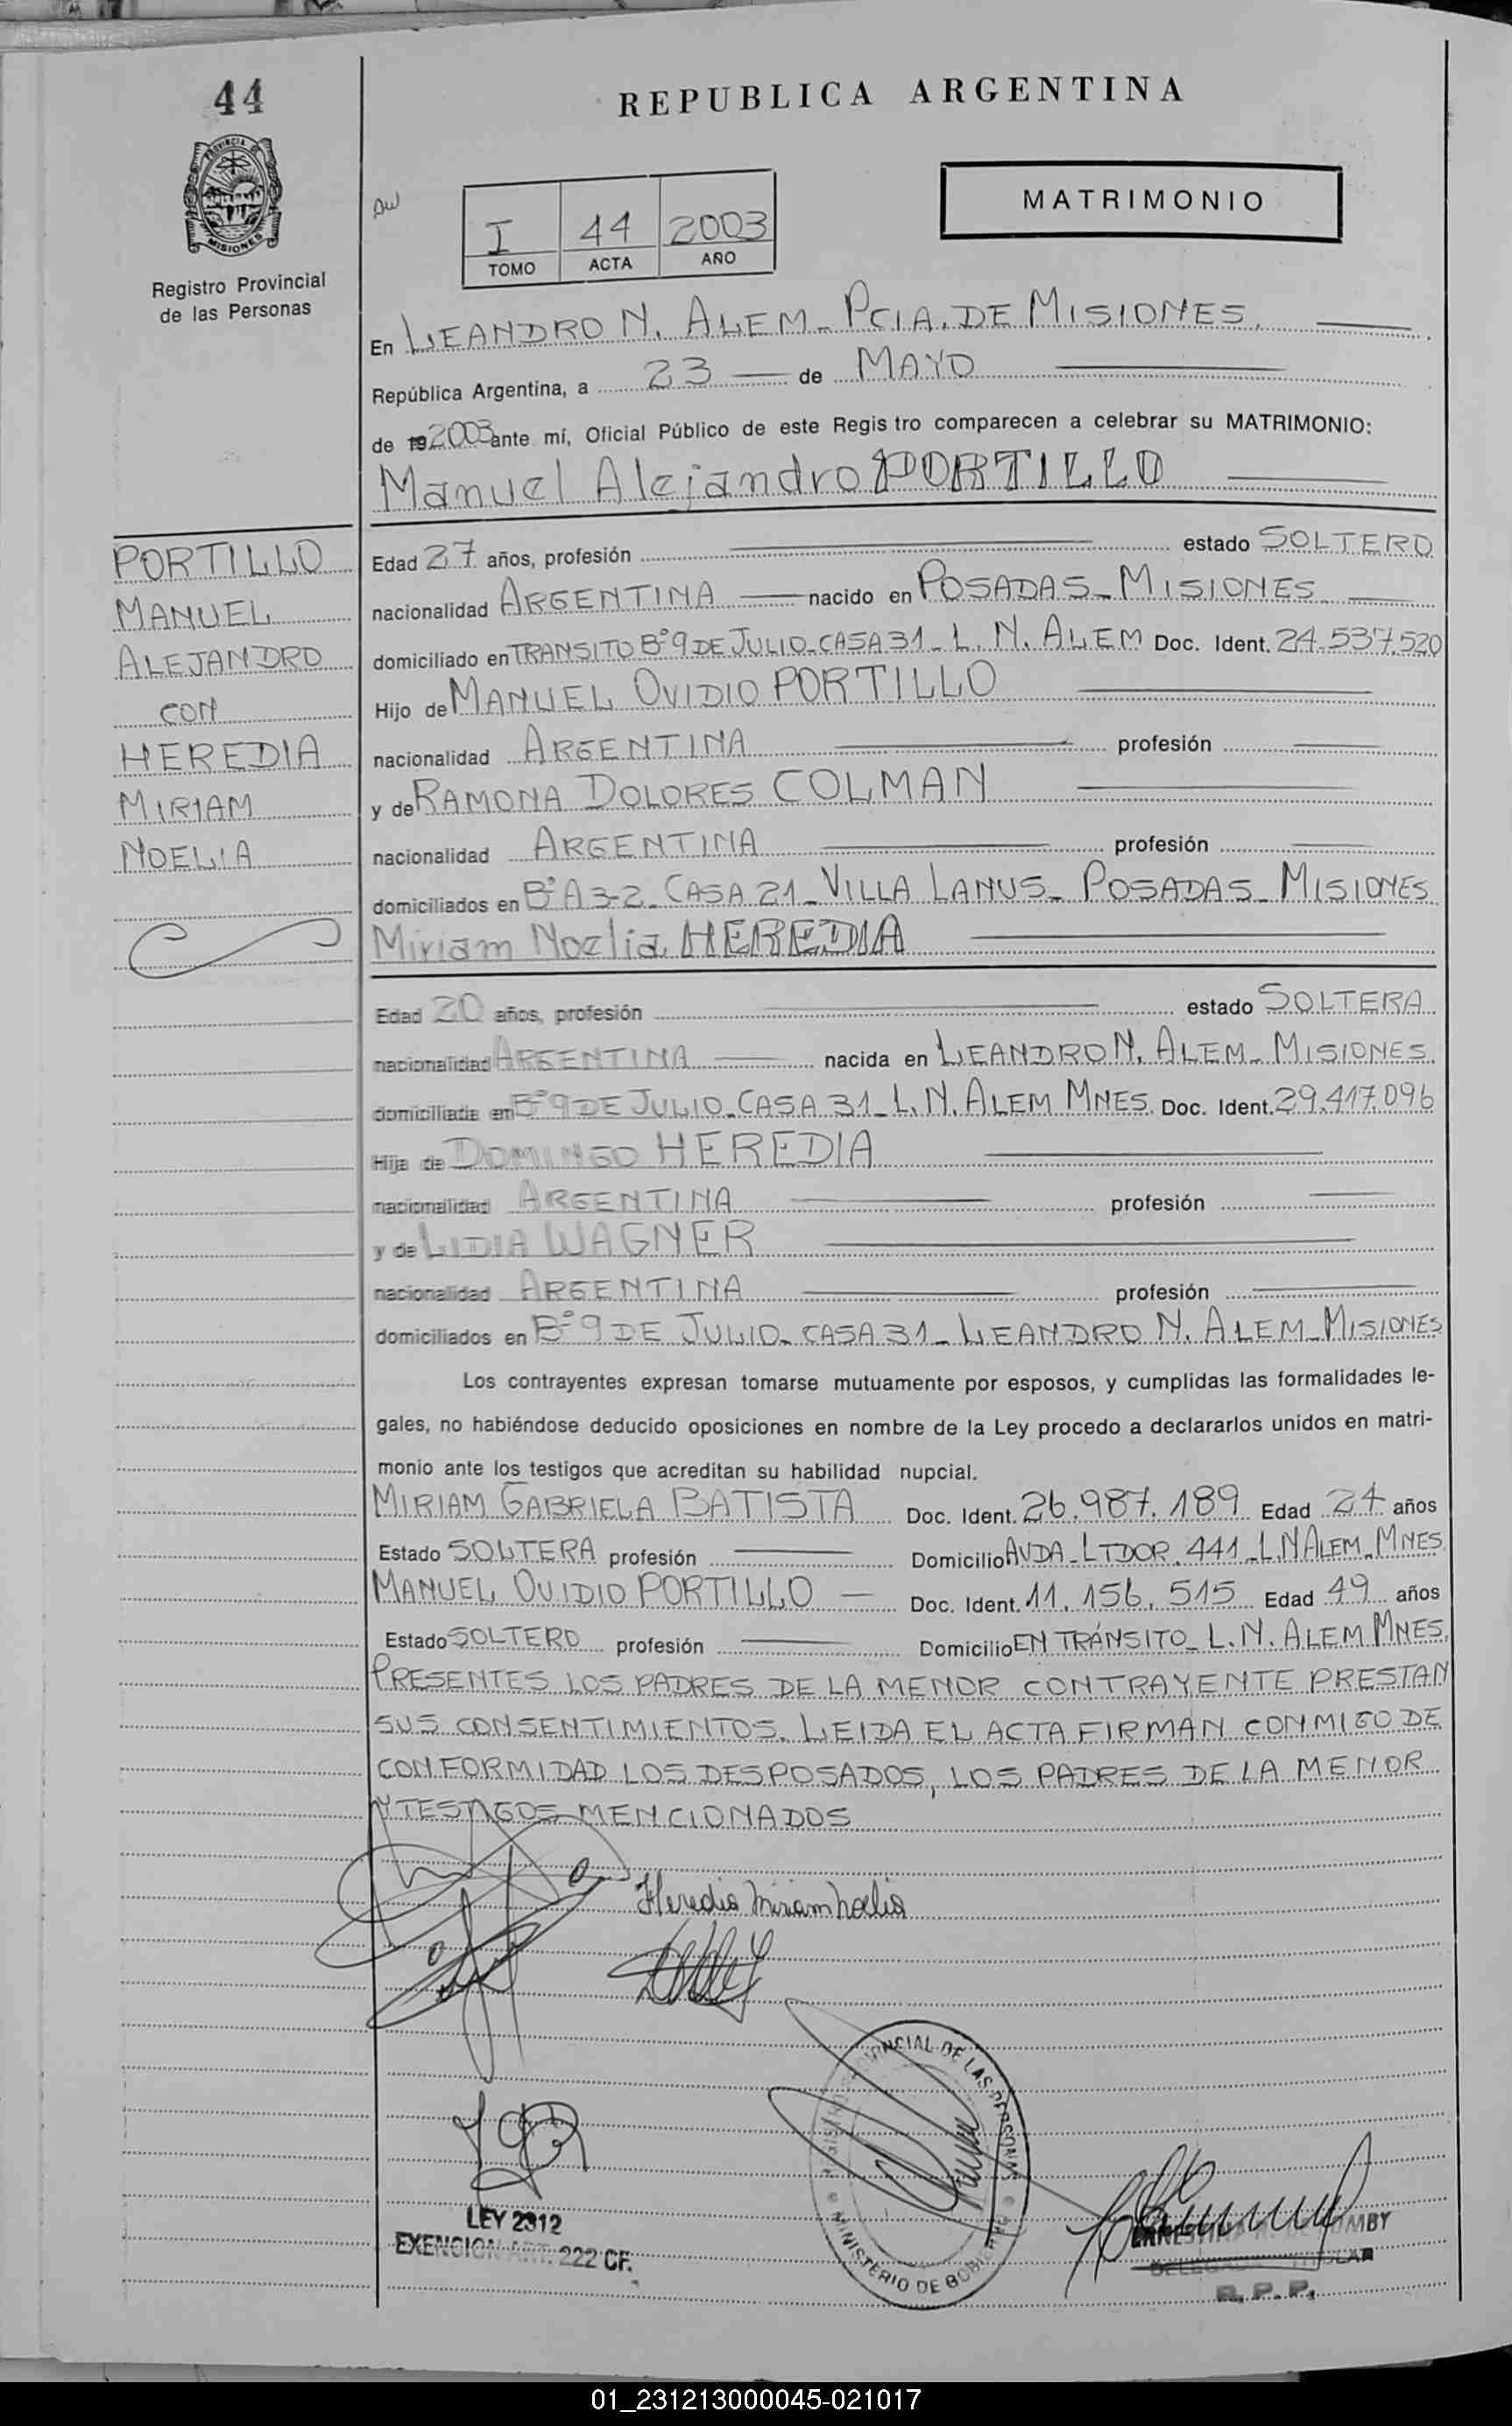 44
REPUBLICA ARGENTINA
PROVINCIA DE
MISIONES
MATRIMONIO
I 44 2003
TOMO ACTA AÑO
Registro Provincial
de las Personas
En LEANDRO N. ALEM - PCIA. DE MISIONES.
República Argentina, a 23 de MAYO
de 19 2003 ante mí, Oficial Público de este Regis tro comparecen a celebrar su MATRIMONIO:
Manuel Alejandro PORTILLO
PORTILLO
MANUEL
ALEJANDRO
CON
HEREDIA
MIRIAM
NOELIA
Edad 27 años, profesión estado SOLTERO
nacionalidad ARGENTINA nacido en POSADAS - MISIONES
domiciliado en TRANSITO Bº 9 DE JULIO - CASA 31 - L. N. ALEM Doc. Ident. 24.537.520
Hijo de MANUEL OVIDIO PORTILLO
nacionalidad ARGENTINA profesión
y de RAMONA DOLORES COLMAN
nacionalidad ARGENTINA profesión
domiciliados en Bº A 3-2 - CASA 21 - VILLA LANUS - POSADAS - MISIONES
Miriam Noelia HEREDIA
Edad 20 años, profesión estado SOLTERA
nacionalidad ARGENTINA nacida en LEANDRO N. ALEM - MISIONES
domiciliada en Bº 9 DE JULIO - CASA 31 - L. N. ALEM MNES. Doc. Ident. 29.417.096
Hija de DOMINGO HEREDIA
nacionalidad ARGENTINA profesión
y de LIDIA WAGNER
nacionalidad ARGENTINA profesión
domiciliados en Bº 9 DE JULIO - CASA 31 - LEANDRO N. ALEM - MISIONES
Los contrayentes expresan tomarse mutuamente por esposos, y cumplidas las formalidades le-
gales, no habiéndose deducido oposiciones en nombre de la Ley procedo a declararlos unidos en matri-
monio ante los testigos que acreditan su habilidad nupcial.
MIRIAM GABRIELA BATISTA Doc. Ident. 26.987.189 Edad 24 años
Estado SOLTERA profesión Domicilio AVDA - LTDOR. 441 - L.N ALEM - MNES
MANUEL OVIDIO PORTILLO — Doc. Ident. 11.156.515 Edad 49 años
Estado SOLTERO profesión Domicilio EN TRÁNSITO - L. N. ALEM MNES.
PRESENTES LOS PADRES DE LA MENOR CONTRAYENTE PRESTAN
SUS CONSENTIMIENTOS. LEIDA EL ACTA FIRMAN CONMIGO DE
CONFORMIDAD LOS DESPOSADOS, LOS PADRES DE LA MENOR
Y TESTIGOS MENCIONADOS
Heredia Miriam Noelia
PROVINCIAL DE LAS PERSONAS
MINISTERIO DE GOBIERNO
LEY 2312
EXENCION ART. 222 CF.
R. P. P.
01_231213000045-021017